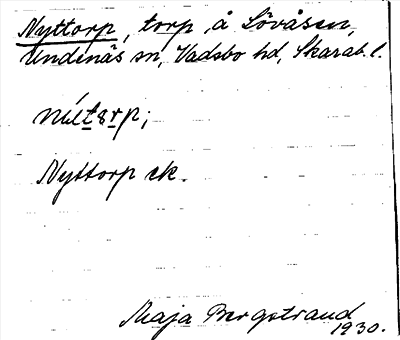 Nyttorp, torp, å Sövåsen,
Undenäs sn, Vadsbo hd, Skarab. l.
Nyttorp ek.
Maja Bergstrand
1930.